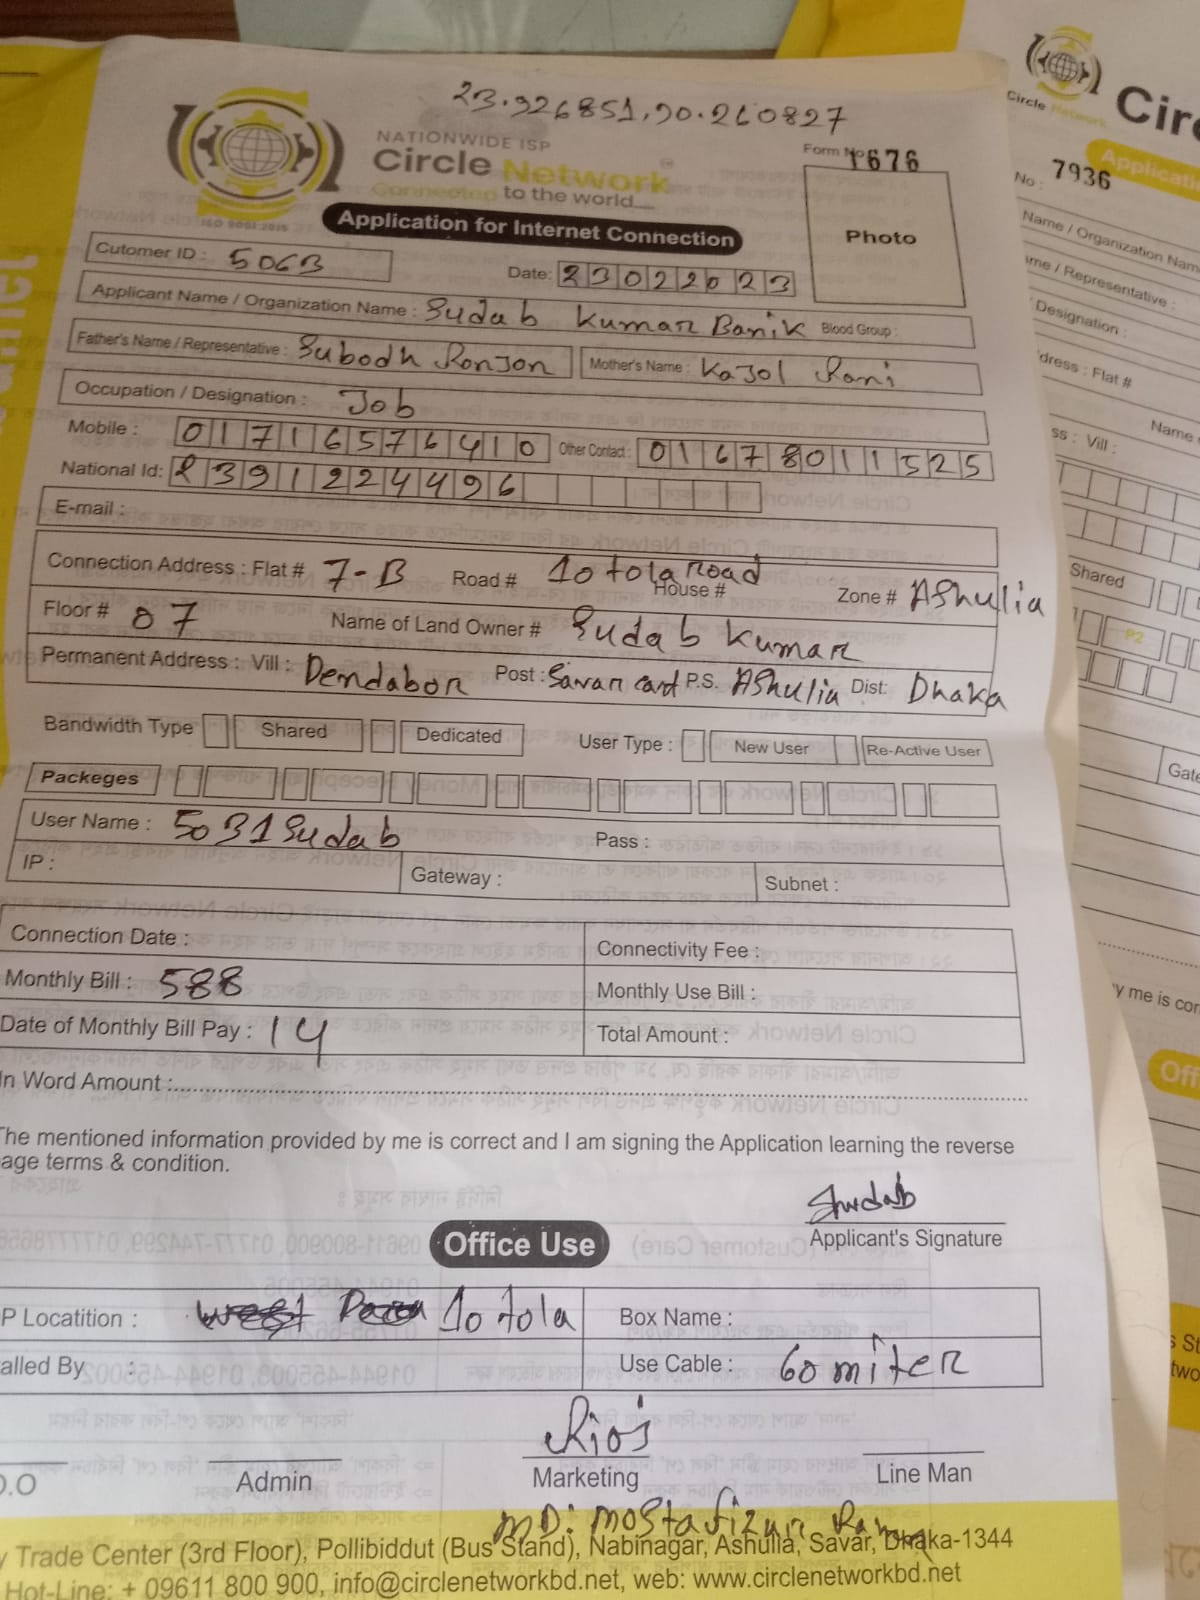 23.926851,90.260827
NATIONWIDE ISP
Circle Network
Connected to the world....
ISO 9001:2015
Form No 1676
Photo
Application for Internet Connection
Cutomer ID : 5063
Date: 23022023
Applicant Name / Organization Name : Sudab Kumar Banik Blood Group :
Father's Name / Representative : Subodh Ronjon Mother's Name : Kajol Rani
Occupation / Designation : Job
Mobile : 01716576410 Other Contact : 01678011525
National Id: 2391224496
E-mail :
Connection Address : Flat # 7-B Road # 10 tola Road House # Zone # AShulia
Floor # 07 Name of Land Owner # Sudab Kumar
Permanent Address : Vill : Dendabor Post : Savar cant P.S. AShulia Dist: Dhaka
Bandwidth Type Shared Dedicated User Type : New User Re-Active User
Packeges
User Name : 5031Sudab Pass :
IP : Gateway : Subnet :
Connection Date : Connectivity Fee :
Monthly Bill : 588 Monthly Use Bill :
Date of Monthly Bill Pay : 14 Total Amount :
In Word Amount :
The mentioned information provided by me is correct and I am signing the Application learning the reverse
age terms & condition.
Shudab
Applicant's Signature
Office Use
P Locatition : 10 tola Box Name :
alled By : Use Cable : 60 miter
Admin Marketing Line Man
MD: Mostafizur Rahman
y Trade Center (3rd Floor), Pollibiddut (Bus Stand), Nabinagar, Ashulia, Savar, Dhaka-1344
Hot-Line: + 09611 800 900, info@circlenetworkbd.net, web: www.circlenetworkbd.net
Circle Network
Cir
Applicati
No : 7936
Name / Organization Nam
me / Representative :
Designation :
dress : Flat #
Name
ss : Vill :
Shared
P2
Gate
y me is cor
Off